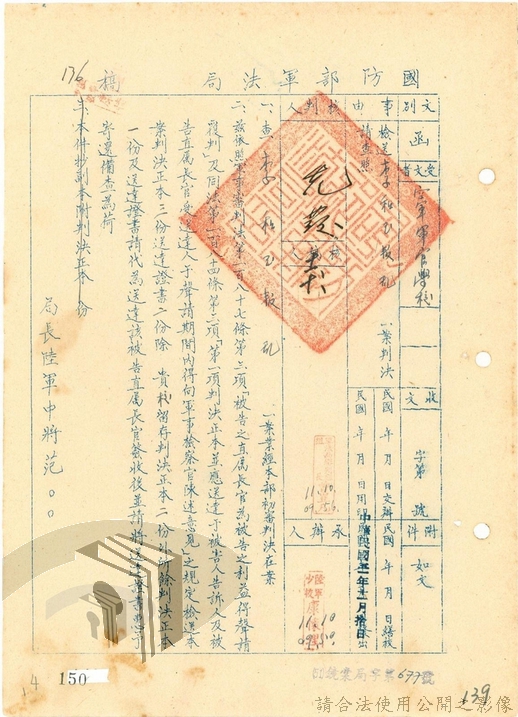 國防部軍法局 稿
136
文別 函
受文者 陸軍軍官學校
事由 檢送李和乙叛亂一案判決請查照
收文 字第 號
附件 如文
民國 年 月 日交辦
民國 年 月 日繕校
民國 年 月 日用印
中華民國五一年十一月拾日發出
核判人
承辦人
11.10.
一、查 李和乙叛亂 一案業經本部初審判決在案
二、茲依照軍事審判法第一百八十七條第三項「被告之直属長官為被告之利益得聲請
覆判」及同法第一百八十四條第二項「第一項判決正本並應送達于被害人告訴人及被
告直属長官受送達人于聲請期間內得向軍事檢察官陳述意見」之規定檢送本
案判決正本三份送達證書二份除 貴校留存判決正本二份外所餘判決正本
一份及送達證書請代為送達該被告直属長官簽收後並請將送達證書惠予
寄還備查為荷
三、本件抄副本附判決正本 份
局長陸軍中將范○○
字第677號
14
150
139
請合法使用公開之影像